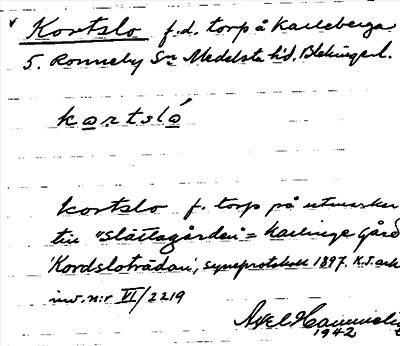 Kortslo f.d. torp å Karleberga
5. Ronneby Sn Medelsta hd. Blekinge l.
kortsló
kortslo f. torp på utmarken
till "Slättagården" = Karlinge Gård
'Kordslotrådan', syneprotokoll 1897. K.S. ark
inv. n:r VI/2219
Axel
1942